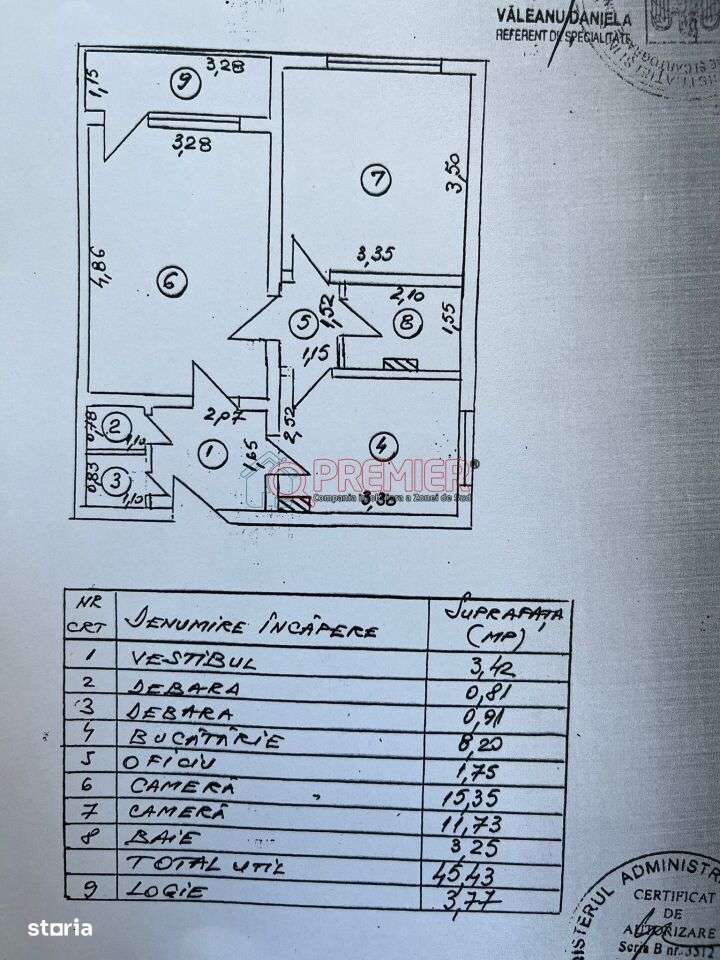 VĂLEANU DANIELA
REFERENT DE SPECIALITATE
3,28
9
1,15
3,28
7
3,50
4,86
6
3,35
2,10
5
1,52
8
1,55
1,15
2
0,78
1,10
2,07
2,52
1
1,65
4
3
0,83
1,10
PREMIER®
Compania Imobiliara a Zonei de Sud
3,30
NR CRT
DENUMIRE ÎNCĂPERE
SUPRAFAȚA (MP)
1 VESTIBUL 3,42
2 DEBARA 0,81
3 DEBARA 0,91
4 BUCĂTĂRIE 8,20
5 OFICIU 1,75
6 CAMERĂ 15,35
7 CAMERĂ 11,73
8 BAIE 3,25
TOTAL UTIL 45,43
9 LOGIE 3,77
storia
CERTIFICAT
DE
AUTORIZARE
Seria B nr. 3512